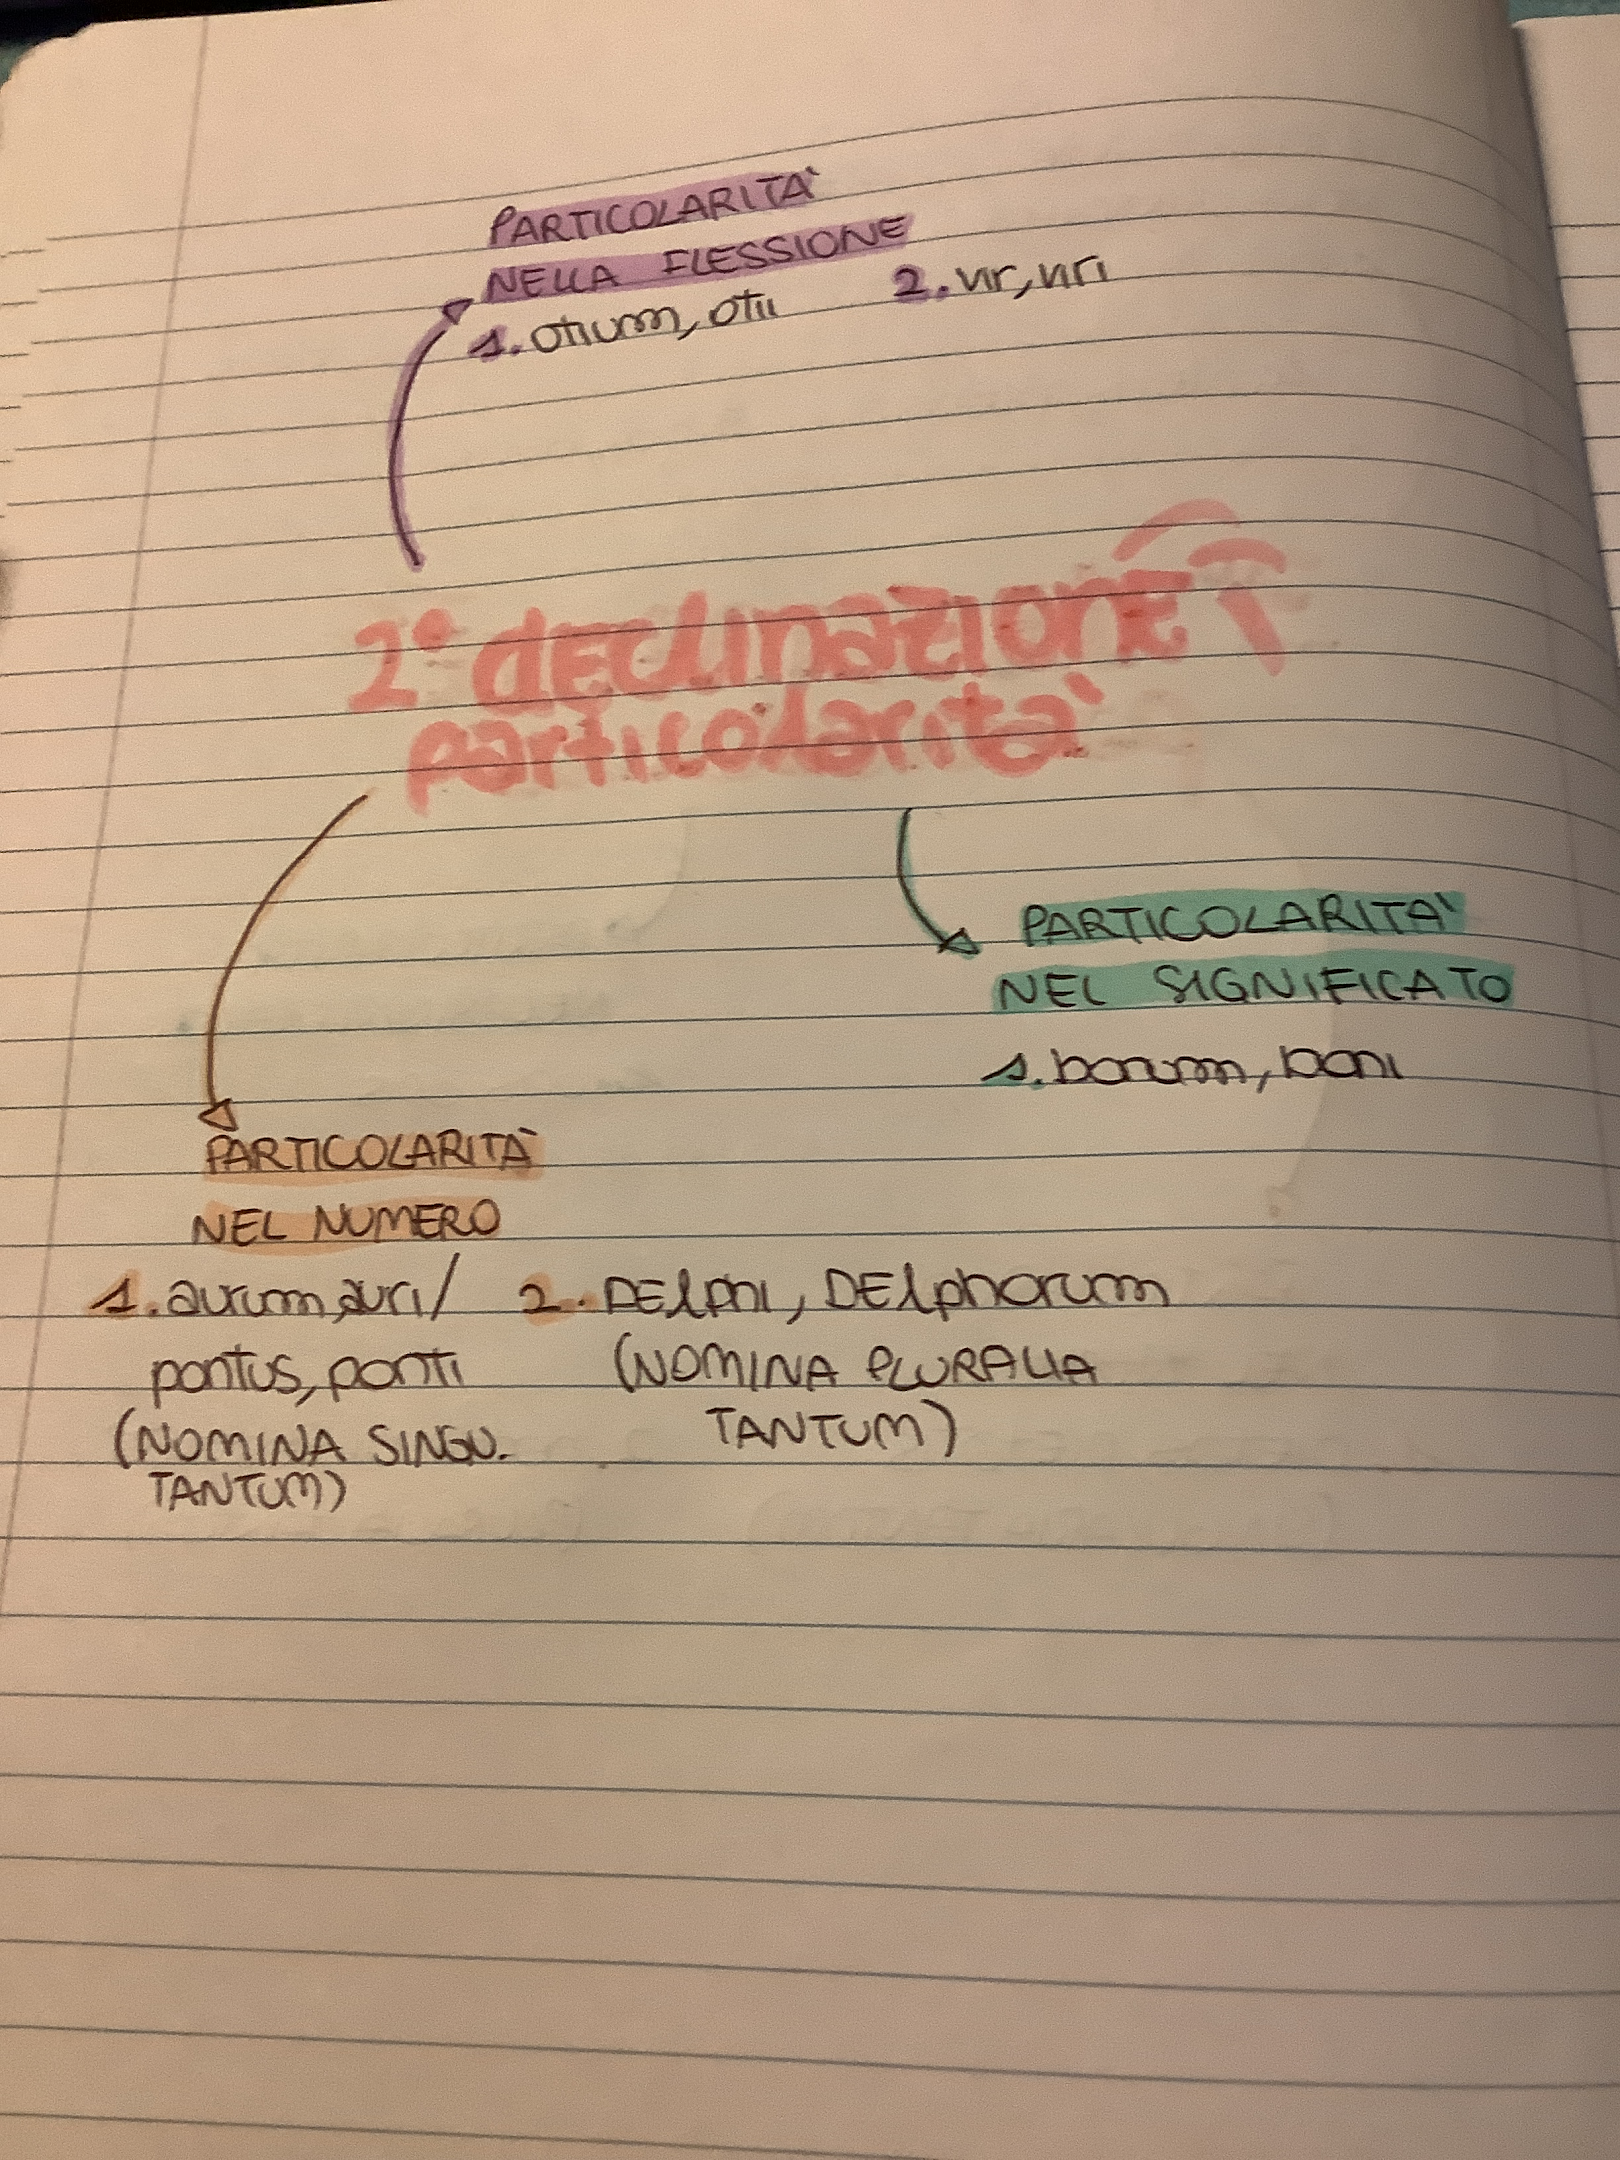 PARTICOLARITÀ
NELLA FLESSIONE
1. otium, otii 2. vir, viri
2° dEClinazionE
particolarità
PARTICOLARITÀ
NEL SIGNIFICATO
1. bonum, boni
PARTICOLARITÀ
NEL NUMERO
1. aurum, auri/ 2. DElphi, DElphorum
pontus, ponti (NOMINA PLURALIA
(NOMINA SINGU. TANTUM)
TANTUM)